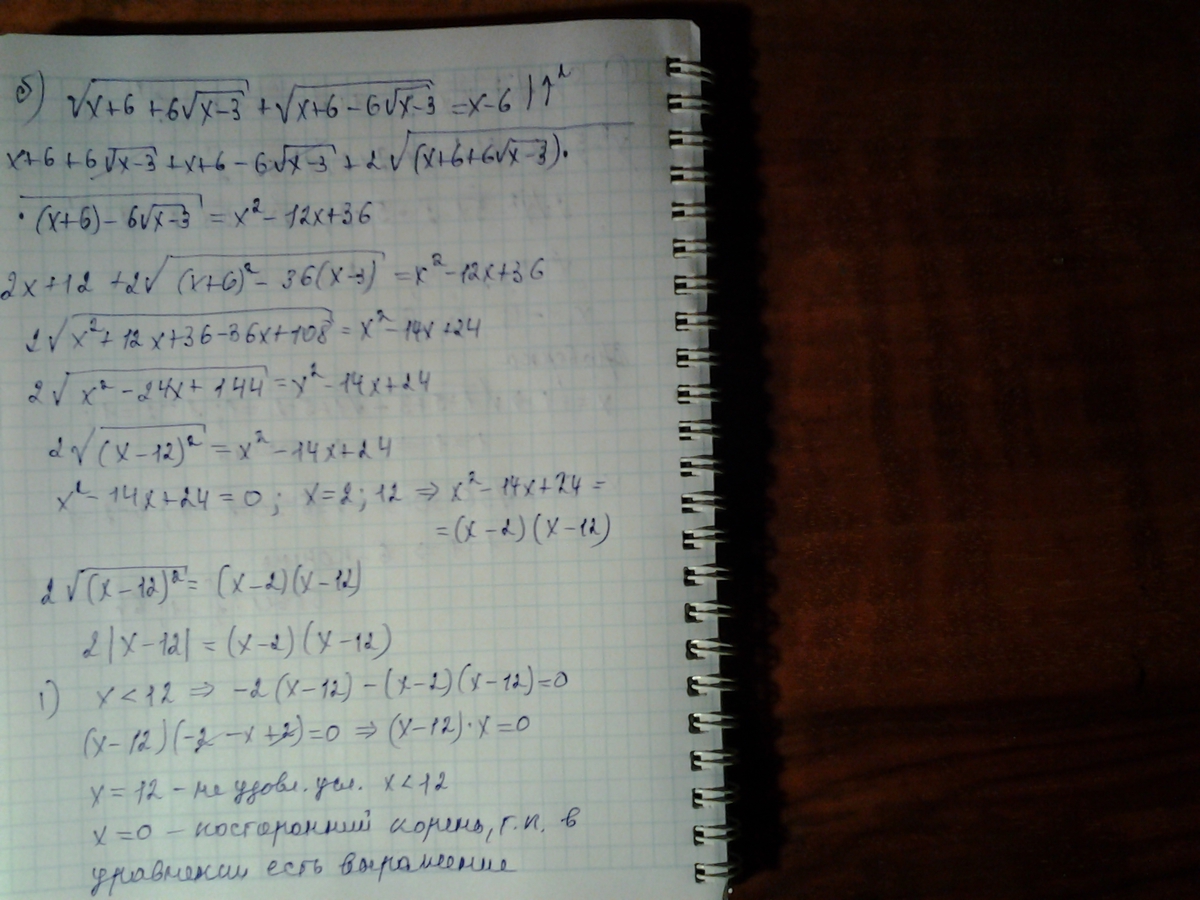 б) √(x+6+6√(x-3)) + √(x+6-6√(x-3)) = x-6 |↑²
x+6+6√(x-3)+x+6-6√(x-3)+2√((x+6+6√(x-3))·
·(x+6)-6√(x-3)) = x²-12x+36
2x+12+2√((x+6)²-36(x-3)) = x²-12x+36
2√(x²+12x+36-36x+108) = x²-14x+24
2√(x²-24x+144) = x²-14x+24
2√((x-12)²) = x²-14x+24
x²-14x+24=0; x=2; 12 ⇒ x²-14x+24=
=(x-2)(x-12)
2√((x-12)²) = (x-2)(x-12)
2|x-12| = (x-2)(x-12)
1) x<12 ⇒ -2(x-12)-(x-2)(x-12)=0
(x-12)(-2-x+2)=0 ⇒ (x-12)·x=0
x=12 - не удовл. усл. x<12
x=0 - посторонний корень, т.к. в
уравнении есть выражение